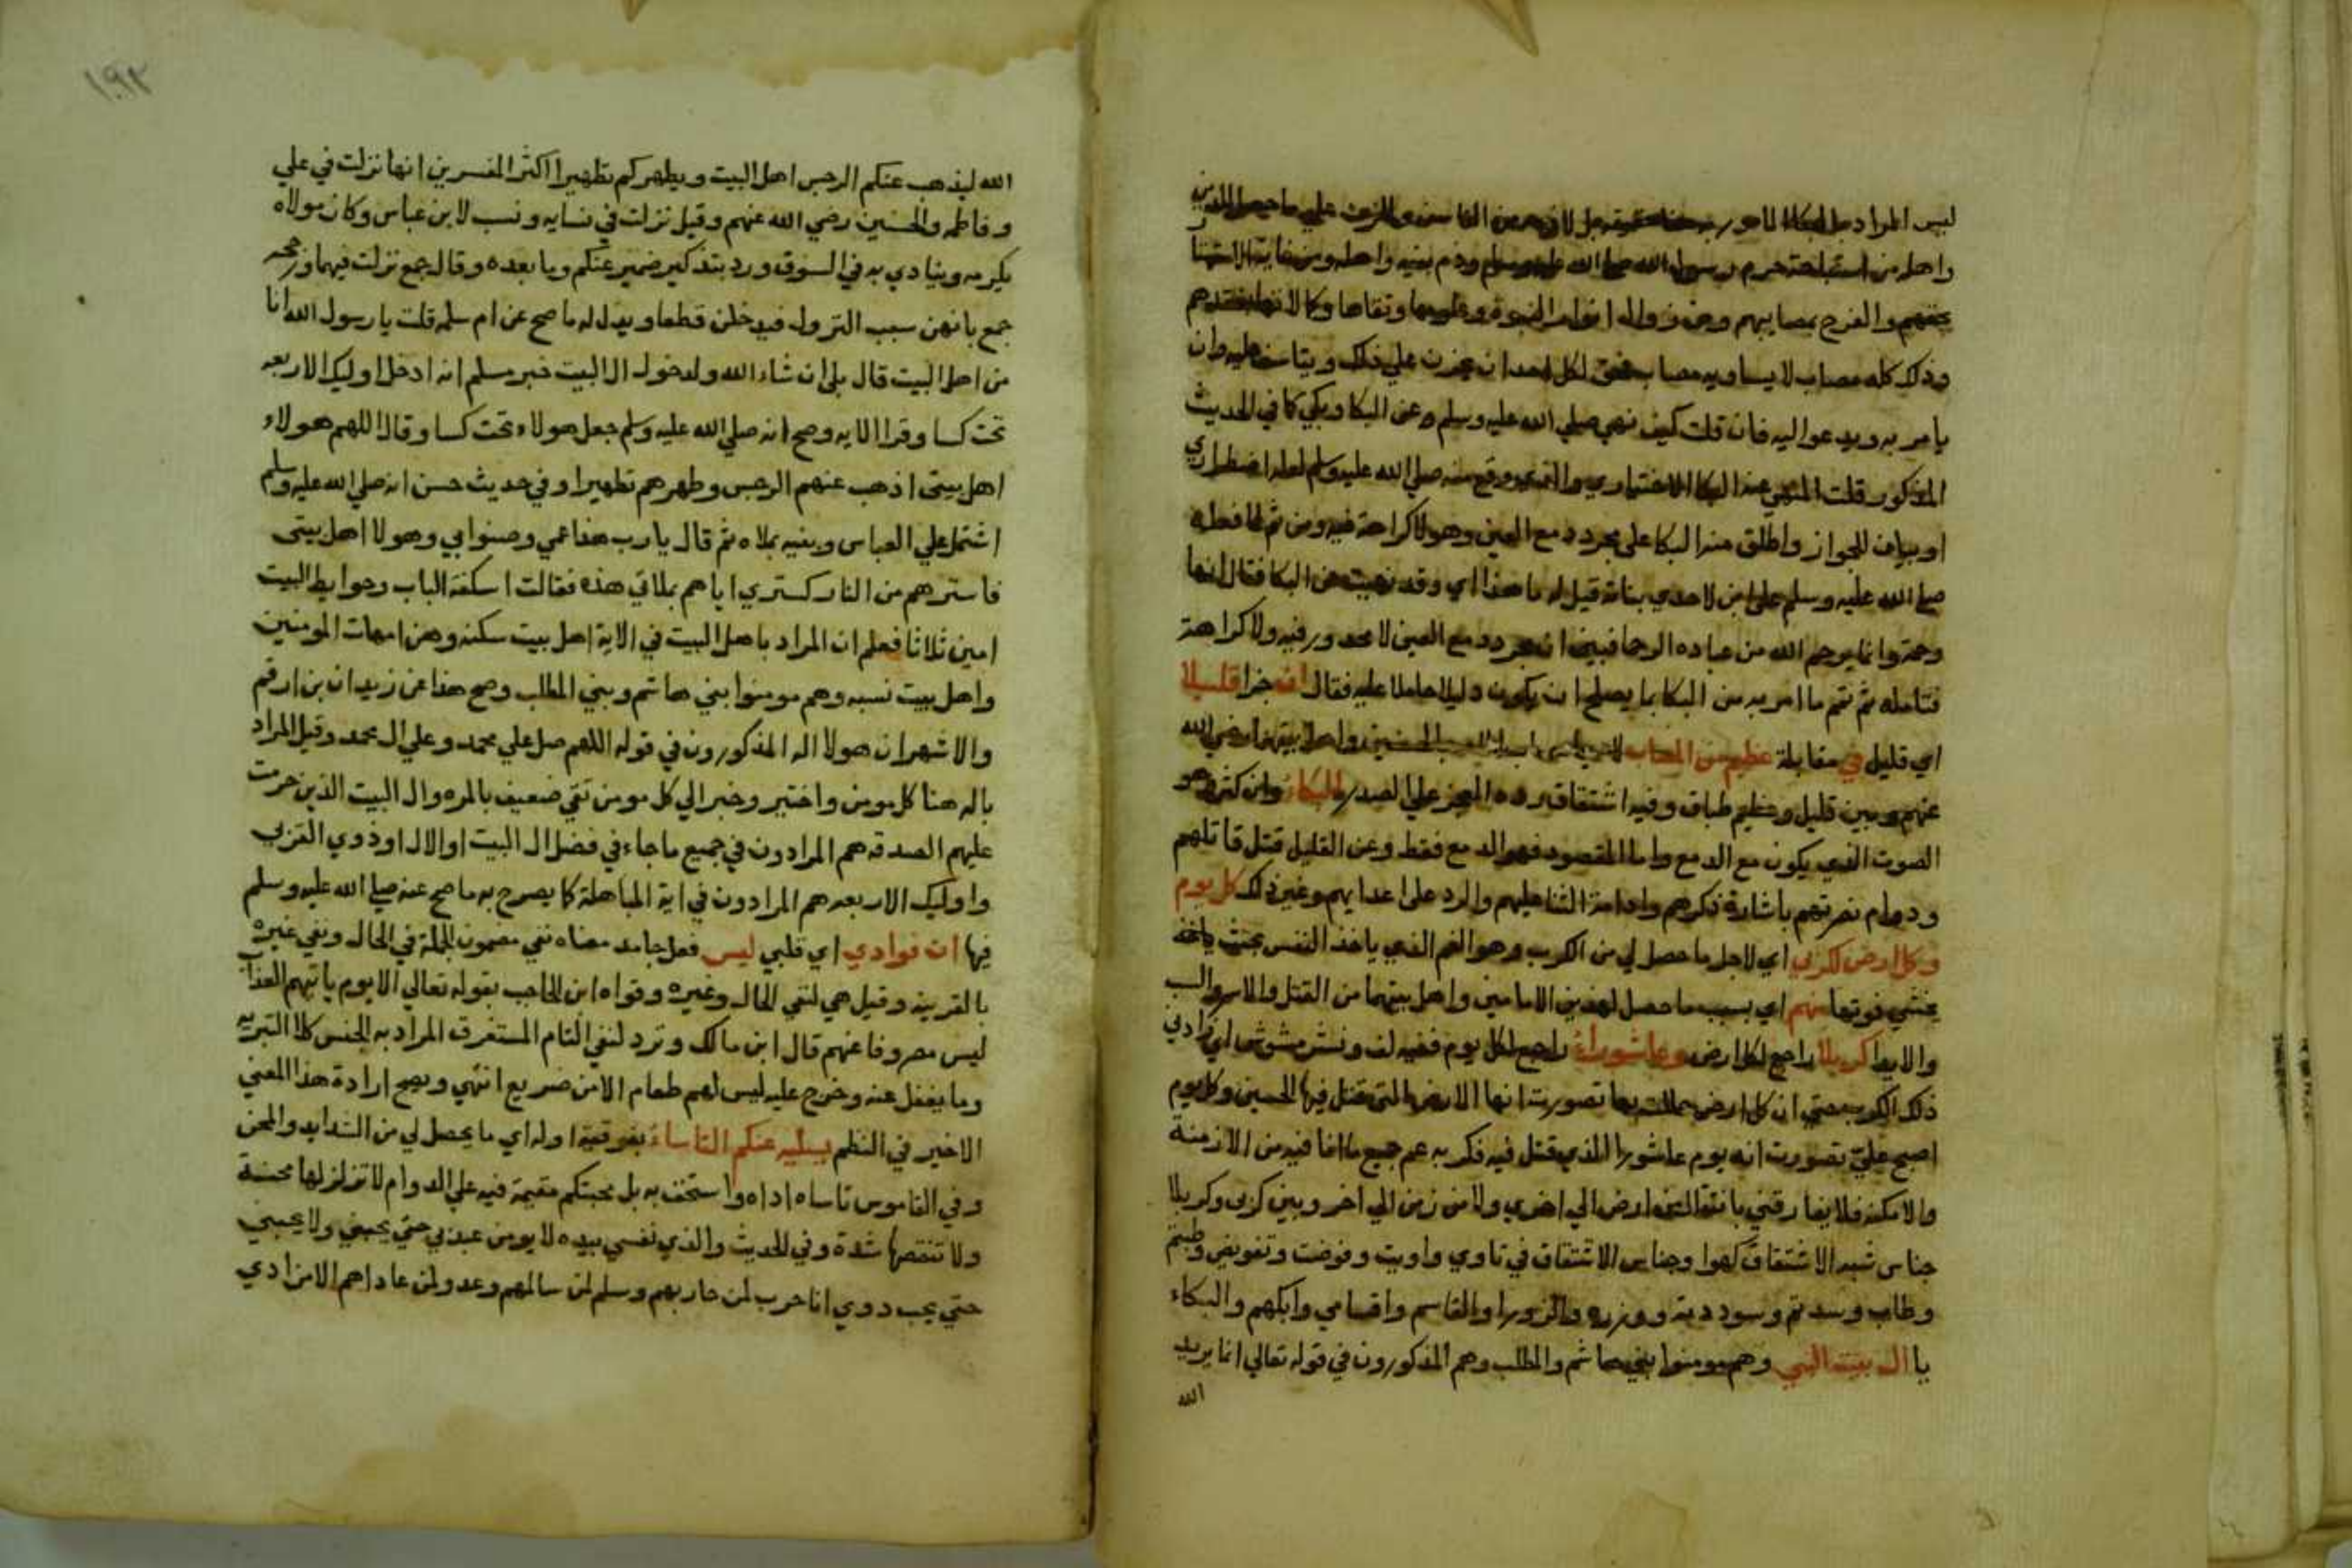 ليس المراد بالبكا المامور به حقيقته بل لازمه من التاسف والحزن علي ما حصل للحسين
واهله من استباحة حرم رسول الله صلي الله عليه وسلم وذم بنيه واهله ومن غاية الاستهتا
بحقهم والفرح بمصايبهم ومن زوال انوار النبوة وعلومها وتقاها وكمالاتها بفقدهم
وذلك كله مصاب لا يساويه مصاب فحق لكل احد ان يحزن علي ذلك ويتاسف عليه وان
يامر به ويدعوا اليه فان قلت كيف نهي صلي الله عليه وسلم عن البكا وبكي كما في الحديث
المذكور قلت المنهي عنه البكا الاختياري والذي وقع منه صلي الله عليه وسلم لعله اضطراري
او بيان للجواز واطلق منه البكا على مجرد دمع العين وهو لا كراهة فيه ومن ثم لما فعله
صلي الله عليه وسلم على ابن لاحدي بناته قيل له ما هذا اي وقد نهيت عن البكا فقال انها
رحمة وانما يرحم الله من عباده الرحما فبين ان مجرد دمع العين لا محدور فيه ولا كراهة
فتامله ثم تمم ما امر به من البكا بما يصلح ان يكون دليلا حاملا عليه فقال ان جزا قليلا
اي قليل في مقابلة عظيم من المصاب الحسين واهل بيتهما رضي الله
عنهم وبين قليل وعظيم طباق وفيه اشتقاق رده العجز علي الصدر بالبكاء وان كثر وهو
الصوت الذي يكون مع الدمع واما المقصود فهو الدمع فقط وعن القليل قتل قاتلهم
ودوام نصرتهم باشادة ذكرهم وادامة الثنا عليهم والرد على اعدايهم وغير ذلك كل يوم
وكل ارض لكربي اي لاجل ما حصل لي من الكرب وهو الغم الذي ياخذ النفس بحيث
يخشي فوتها منهم اي بسبب ما حصل لهذين الامامين واهل بيتهما من القتل والاسر والسب
والايذا كربلا راجع لكل ارض وعاشوراء راجع لكل يوم ففيه لف ونشر مشوش اي زادني
ذلك الكرب حتي ان كل ارض حللت بها تصورت انها الارض التي قتل فيها الحسين وكل يوم
اصبح علي تصورت انه يوم عاشورا الذي قتل فيه فكربه عم جميع ما انا فيه من الازمنة
والامكنة فلا يفارقني بانتقالي من ارض الي اخري ولا من زمن الي اخر وبين كربي وكربلا
جناس شبه الاشتقاق كهوا وجناس الاشتقاق في تاوي واويت وفوضت وتفويض وطبتم
وطاب وسدتم وسود دية ووزره والزورا والقاسم واقسامي وابكهم والبكاء
يا ال بيت النبي وهم مومنوا بني هاشم والمطلب وهم المذكورون في قوله تعالي انما يريد
الله
١٩٢
الله ليذهب عنكم الرجس اهل البيت ويطهركم تطهيرا اكثر المفسرين انها نزلت في علي
وفاطمه والحسنين رضي الله عنهم وقيل نزلت في نسايه ونسب لابن عباس وكان مولاه
عكرمه وينادي به في السوق ورد بتذكير ضمير عنكم وما بعده وقال جمع نزلت فيهما ورجحه
جمع بانهن سبب النزول فيدخلن قطعا ويدل له ما صح عن ام سلمه قلت يا رسول الله انا
من اهل البيت قال بلى ان شاء الله ولدخول ال البيت خبر مسلم انه ادخل اوليك الاربعه
تحت كسا وقرا الايه وصح انه صلي الله عليه وسلم جعل هولاء تحت كسا وقال اللهم هولاء
اهل بيتي اذهب عنهم الرجس وطهرهم تطهيرا وفي حديث حسن انه صلي الله عليه وسلم
اشتمل علي العباس وبنيه بملاه ثم قال يا رب هذا عمي وصنوابي وهولا اهل بيتي
فاسترهم من النار كستري اياهم بملاتي هذه فقالت اسكفة الباب وحوايط البيت
امين ثلاثا فعلم ان المراد باهل البيت في الاية اهل بيت سكنه وهن امهات المومنين
واهل بيت نسبه وهم مومنوا بني هاشم وبني المطلب وصح هذا عن زيد ان بن ارقم
والاشهر ان هولا اله المذكورون في قوله اللهم صل علي محمد وعلي ال محمد وقيل المراد
باله هنا كل مومن واختير وخبر الي كل مومن تقي ضعيف بالمره وال البيت الذين حرمت
عليهم الصدقه هم المرادون في جميع ما جاء في فضل ال البيت او الال او ذوي القربى
واوليك الاربعه هم المرادون في اية المباهلة كما يصرح به ما صح عنه صلي الله عليه وسلم
فيها ان فوادي اي قلبي ليس فعل جامد معناه نفي مضمون الجملة في الحال ونفي غيره
بالقرينه وقيل هي لنفي الحال وغيره وقواه ابن الحاجب بقوله تعالي الا يوم ياتيهم العذاب
ليس مصروفا عنهم قال ابن مالك وترد لنفي التام المستغرق المراد به الجنس كلا التبريه
وما يغفل عنه وخرج عليه ليس لهم طعام الا من ضريع انتهي ويصح ارادة هذا المعني
الاخير في النظم يسليه عنكم التاساء بفوقية اوله اي ما يحصل لي من الشدايد والمحن
وفي القاموس تاساه اذاه واستخف به بل محبتكم مقيمة فيه علي الدوام لا تزلزلها محنة
ولا تنقصها شدة وفي الحديث والذي نفسي بيده لا يومن عبد بي حتي يحبني ولا يحبني
حتي يحب ذوي انا حرب لمن حاربهم وسلم لمن سالمهم وعدو لمن عاداهم الا من اذي